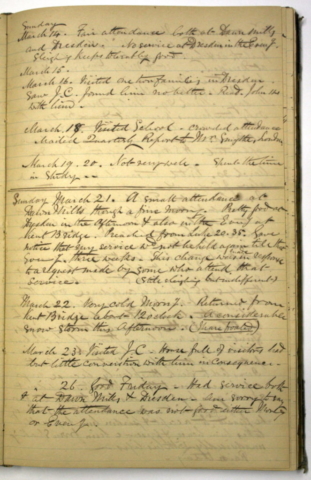 Sunday
March 14. Fair attendance both at Dawn Mills
and Dresden. No service at Dresden in the Even'g.
Sleighing keeps tolerably good.
March 15.
March 16. Visited one two families in Dresden.
Saw J.C. found him no better. Read. John
with him.
March 18. Visited School - crowded attendance
Mailed Quarterly Report to
March 19. 20. Not very well. Spent the time
in Study.
Sunday March 21. A small attendance at
Dawn Mills though a fine Morn'g. Pretty good
Dresden in the Afternoon & also in the Even'g at
Kent Bridge. Preach'd from Luke 20.35. Gave
notice that my service w'd not be held again till the
Even'g three weeks. This change was in response
to a request made by some who attend that
Service. (Sleighing but indifferent)
March 22. Very cold Morn'g. Returned from
Kent Bridge about 12 o'clock. A considerable
snow storm this Afternoon.
March 23. Visited J.C. House full of visitors had
but little conversation with him in consequence.
" 26. Good Friday - Had service both
at Dawn Mills & Dresden. Am sorry to say
that the attendance was not good either Morn'g
or Even'g.